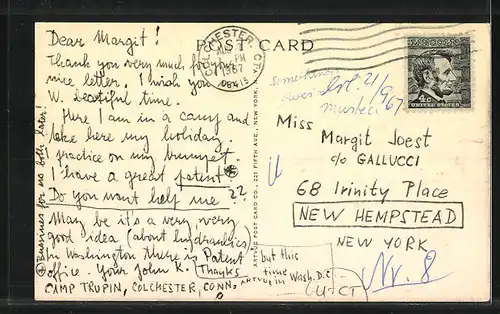 POST CARD
Dear Margit!
Thank you very much for your
nice letter. I wish you
W. beatiful time.
Here I am in a camp and
take here my holiday.
practice on my trumpet.
I have a great patent! ⊛
Do you want help me ??
May be it's a very very
good idea (about hydraulics)
In Washington there is Patent
office. Your John K. Thanks
CAMP TRUPIN, COLCHESTER, CONN.
but this
time in Wash. D.C.
⊛ Bussines for us both later!
ARTVUE POST CARD CO., 225 FIFTH AVE., NEW YORK,
COLCHESTER, CT.
PM
1967
06415
4c
UNITED STATES
21/9/67
Miss
Margit Joest
c/o GALLUCCI
68 Irinity Place
NEW HEMPSTEAD
NEW YORK
Nr. 8